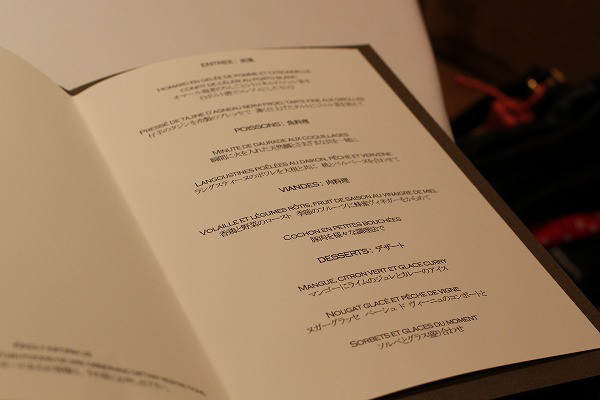 ENTREE : 前菜
HOMARD EN GELÉE DE POMME ET CITRONNELLE
CONFIT DE CÉLERI AU PORTO BLANC
PRESSÉ DE TAJINE D'AGNEAU SERVI FROID, TARTE FINE AUX GIROLLES
POISSONS : 魚料理
MINUTE DE DAURADE AUX COQUILLAGES
瞬間に火を入れた天然鯛とさまざまな貝を一緒に
LANGOUSTINES POÊLÉES AU DAIKON, PÊCHE ET VERVEINE
ラングスティーヌのポワレを大根と共に 桃とバルベーヌを合わせて
VIANDES : 肉料理
VOLAILLE ET LÉGUMES RÔTIS, FRUIT DE SAISON AU VINAIGRE DE MIEL
香鶏と野菜のロースト 季節のフルーツに蜂蜜ヴィネガーをからめて
COCHON EN PETITES BOUCHÉES
豚肉を様々な調理法で
DESSERTS : デザート
MANGUE, CITRON VERT ET GLACE CURRY
マンゴーにライムのジュレとカレーのアイス
NOUGAT GLACÉ ET PÊCHE DE VIGNE
ヌガーグラッセ ペーシュ ド ヴィーニュのコンポートと
SORBETS ET GLACES DU MOMENT
ソルベとグラス盛り合わせ